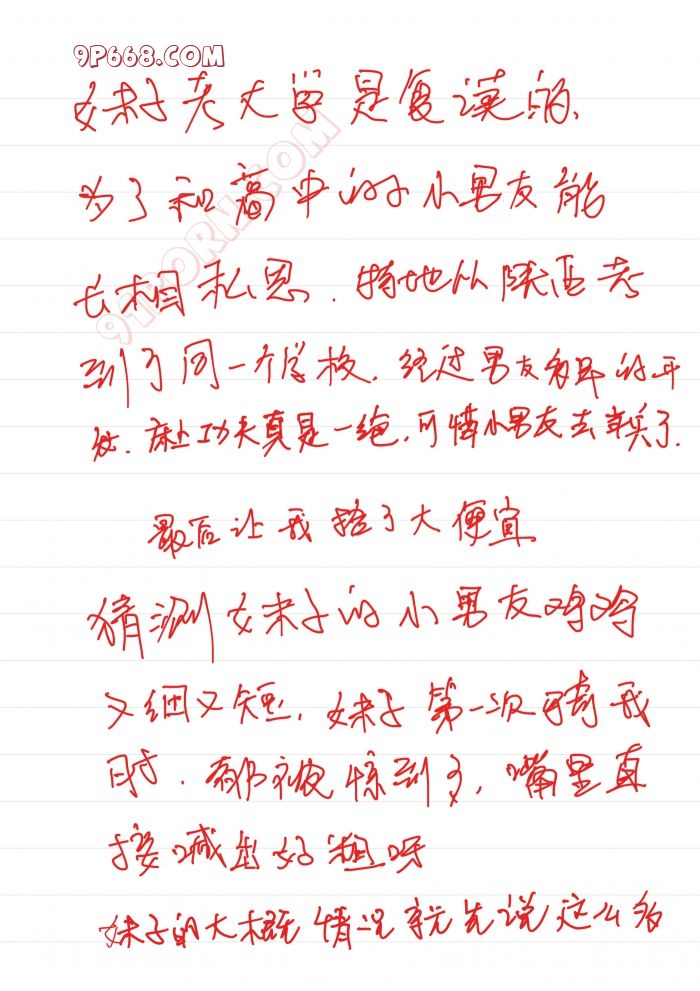 9P668.COM
妹子考大学是复读的、
91PORN.COM
为了和高中的小男友能
长相私思．特地从陕西考
到了同一个学校．经过男友多年的开
发．床上功夫真是一绝．可惜小男友去当兵了．
最后让我捡了大便宜
猜测女妹子的小男友鸡鸡
又细又短．妹子第一次骑我
时．都被惊到了，嘴里直
接喊出好粗呀
妹子的大概情况就先说这么多